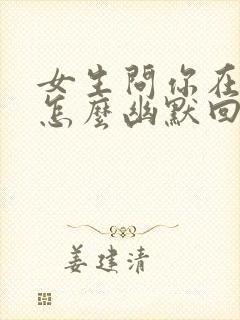 女生問你在
怎麼幽默回
姜建清